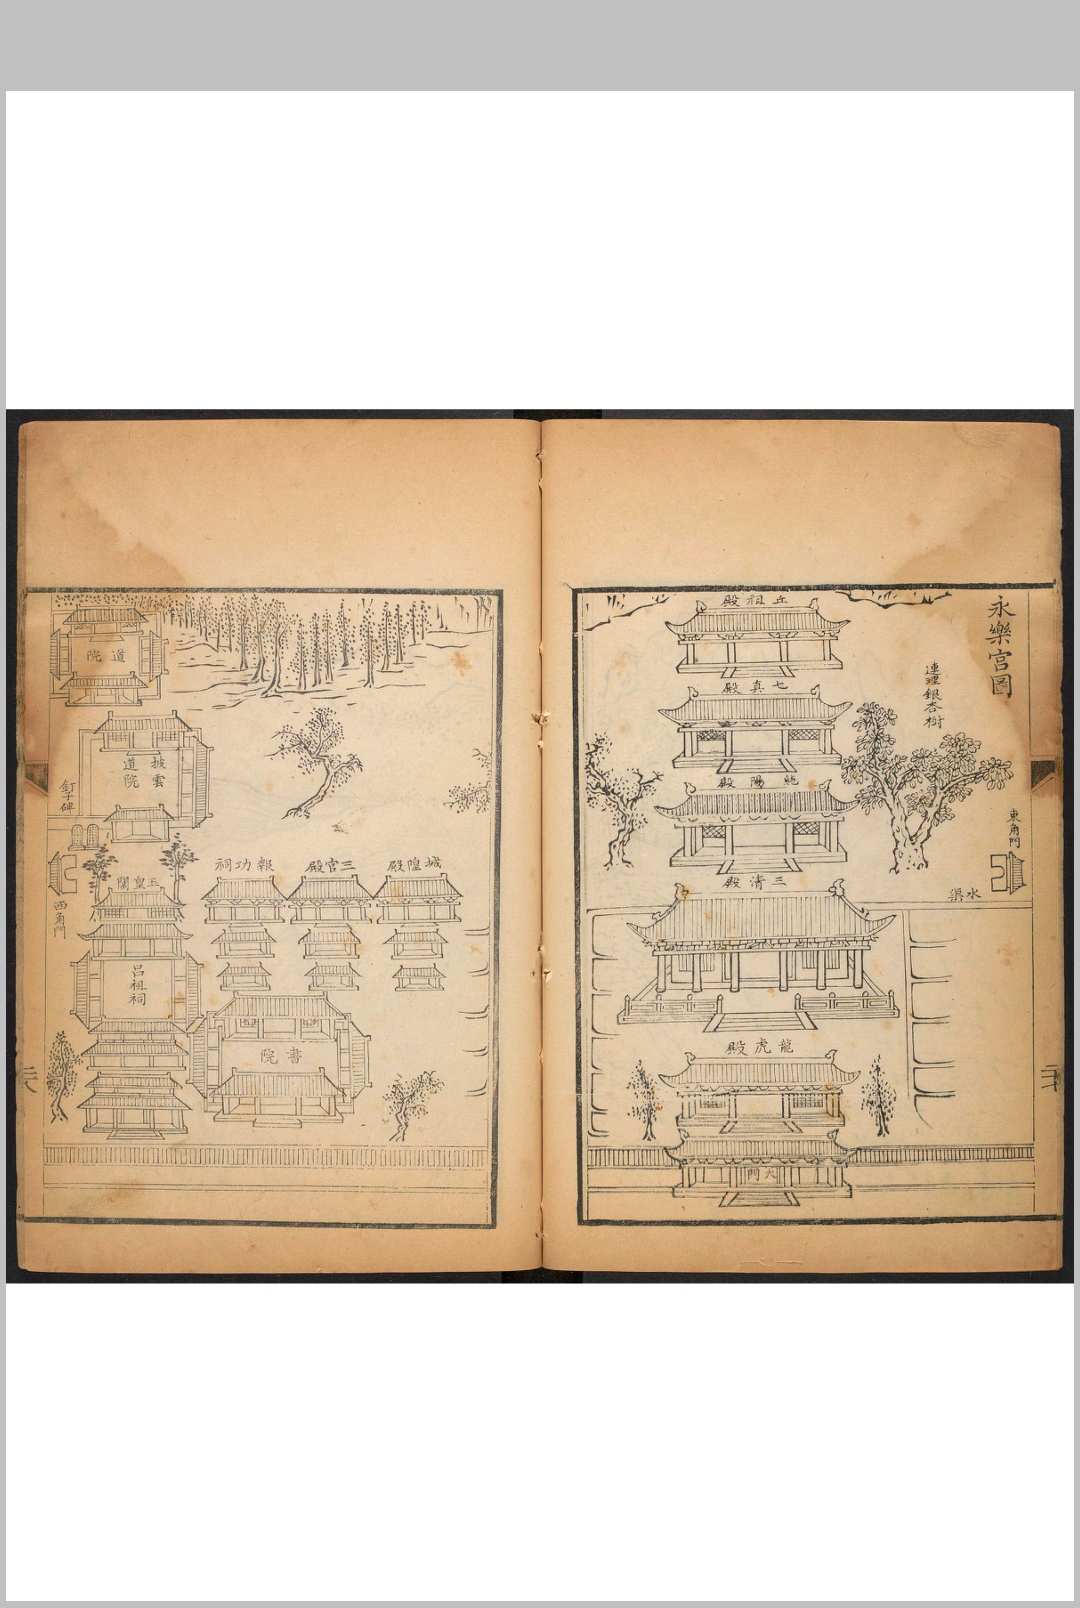 永樂宮圖
連理銀杏樹
東角門
水渠
丘祖殿
七真殿
純陽殿
三清殿
龍虎殿
大門
城隍殿
三官殿
報功祠
書院
道院
披雲道院
釘子碑
玉皇閣
西角門
呂祖祠